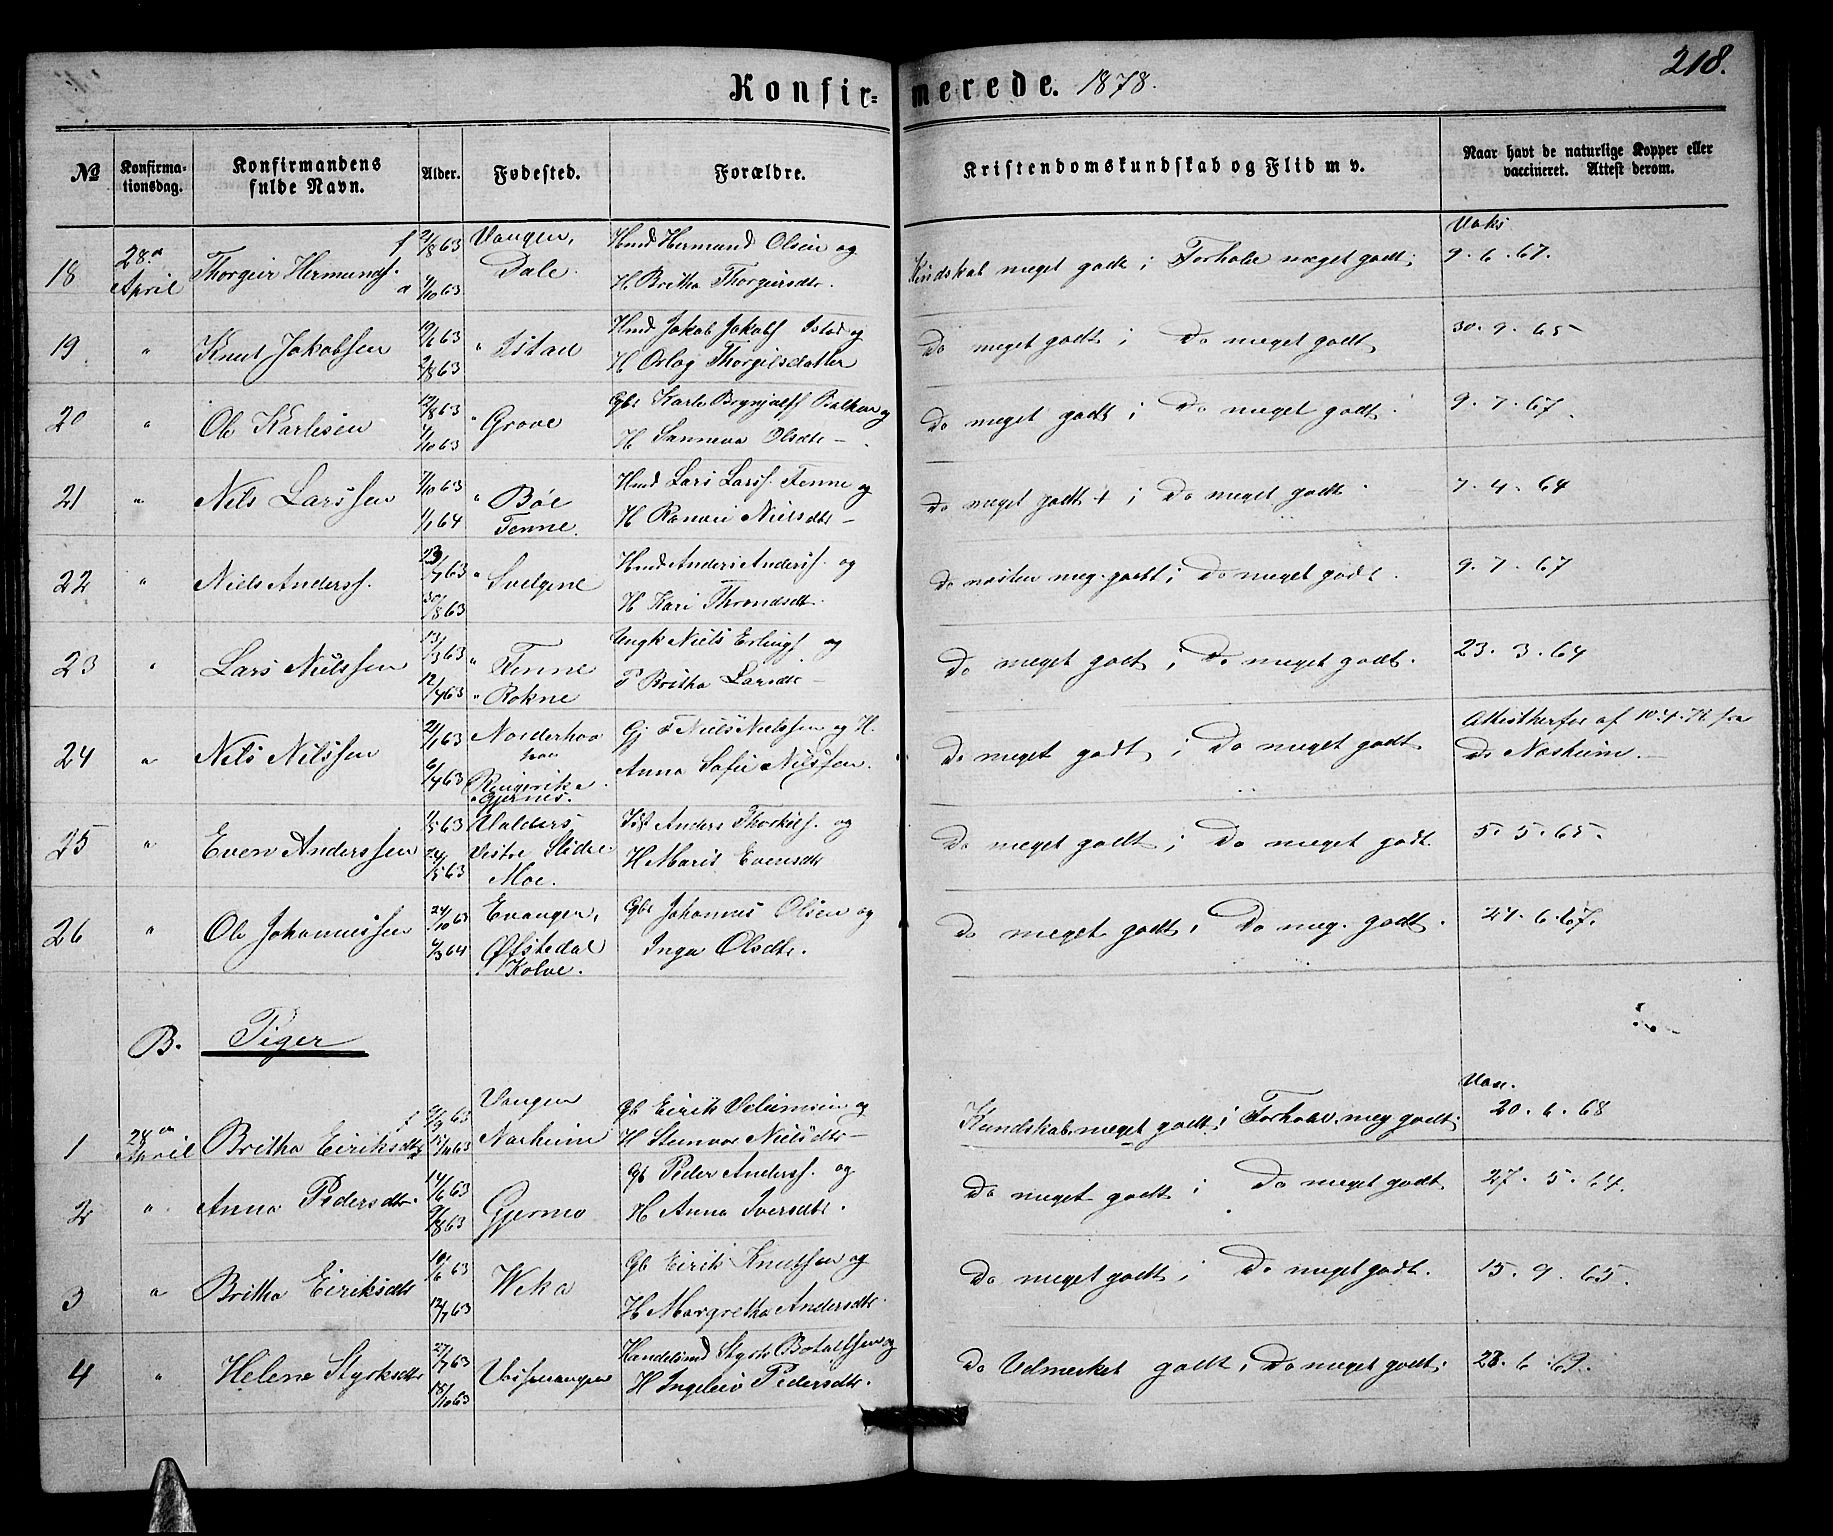 218.
Konfir= merede. 1878.
No Konfirma- tionsdag. Konfirmandens fulde Navn. Alder. Fødested. Forældre. Kristendomskundskab og Flid m v. Naar havt de naturlige Kopper eller vaccineret. Attest derom.
18 28de April Thorgeir Hermunds. f 63 d 63 Vangen, Dale. Hmd Hermund Olsen og H Britha Thorgersdtr. Kundskab meget godt; Forhold meget godt; Vaks 9. 6. 67.
19 " Knut Jakobsen 63 2/8 63 " Istad Hmd Jakob Jakobs Istad og H Orlog Thorgilsdatter Do meget godt; Do meget godt 30. 9. 65
20 " Ole Karlesen 12/8 63 4/10 63 " Grove Gbr Karle Brynjulfs og H Sanneva Olsdtr Do meget godt; Do meget godt. 9. 7. 67.
21 " Nils Larssen 7/10 63 1/1 64 " Bøe Tenne. Hmd Lars Larss. Tenne og H Ranvei Nielsdtr Do meget godt; Do meget godt. 7. 4. 64
22 " Niels Anderss. 63 30/8 63 " Svelgene Hmd Anders Anderss. og H Kari Throndsdt. Do næsten meg. godt; Do meget godt. 9. 7. 67
23 " Lars Nielssen 13/3 63 12/4 63 " Tenne " Rokne Ungk Niels Erlings og P Britha Larsdtr Do meget godt; Do meget godt. 23. 3. 64
24 " Nils Nilssen 21/1 63 6/4 63 Norderhov Ringerike " Gjernes. Gj Niels Nielssen og H. Anna Sofie Nilssen. Do meget godt; Do meget godt Attest herfor af fra Dr Næsheim.
25 " Even Anderssen 5 63 24/5 63 Valders Vestre Slidre Moe. Inst Anders Thorkils. og H Marit Evensdtr Do meget godt; Do meget godt. 5. 5. 65.
26 " Ole Johannessen 24/10 63 /3 64 Evanger, Øfstedal Kolve. Gbr Johannes Olsen og Inga Olsdtr. Do meget godt; Do meg. godt. 27. 6. 67.
B. Piger
1 28de April Britha Eiriksdtr f /9 63 15/11 63 Vangen Næsheim Gb Eirik og H Steinvor Nielsdtr Kundskab meget godt; Forhold meg godt; Vax. 20. 6. 68
2 " Anna Pedersdtr. 14/6 63 9/8 63 Gjerme Gb Peder Anderss. og H Anna Iversdtr. Do meget godt; Do meget godt 27. 5. 64.
3 " Britha Eiriksdtr 10/6 63 12/7 63 Weka Gb Eirik Knutsen og H Margretha Andersdtr. Do meget godt; Do meget godt. 15. 9. 65.
4 " Helena Styrksdtr 27/7 63 18/10 63 Vossevangen Handelsmd Styrk Botolfsen og H Ingeleiv Pedersdtr. Do Udmerket godt; Do meget godt. 28. 6. 69.